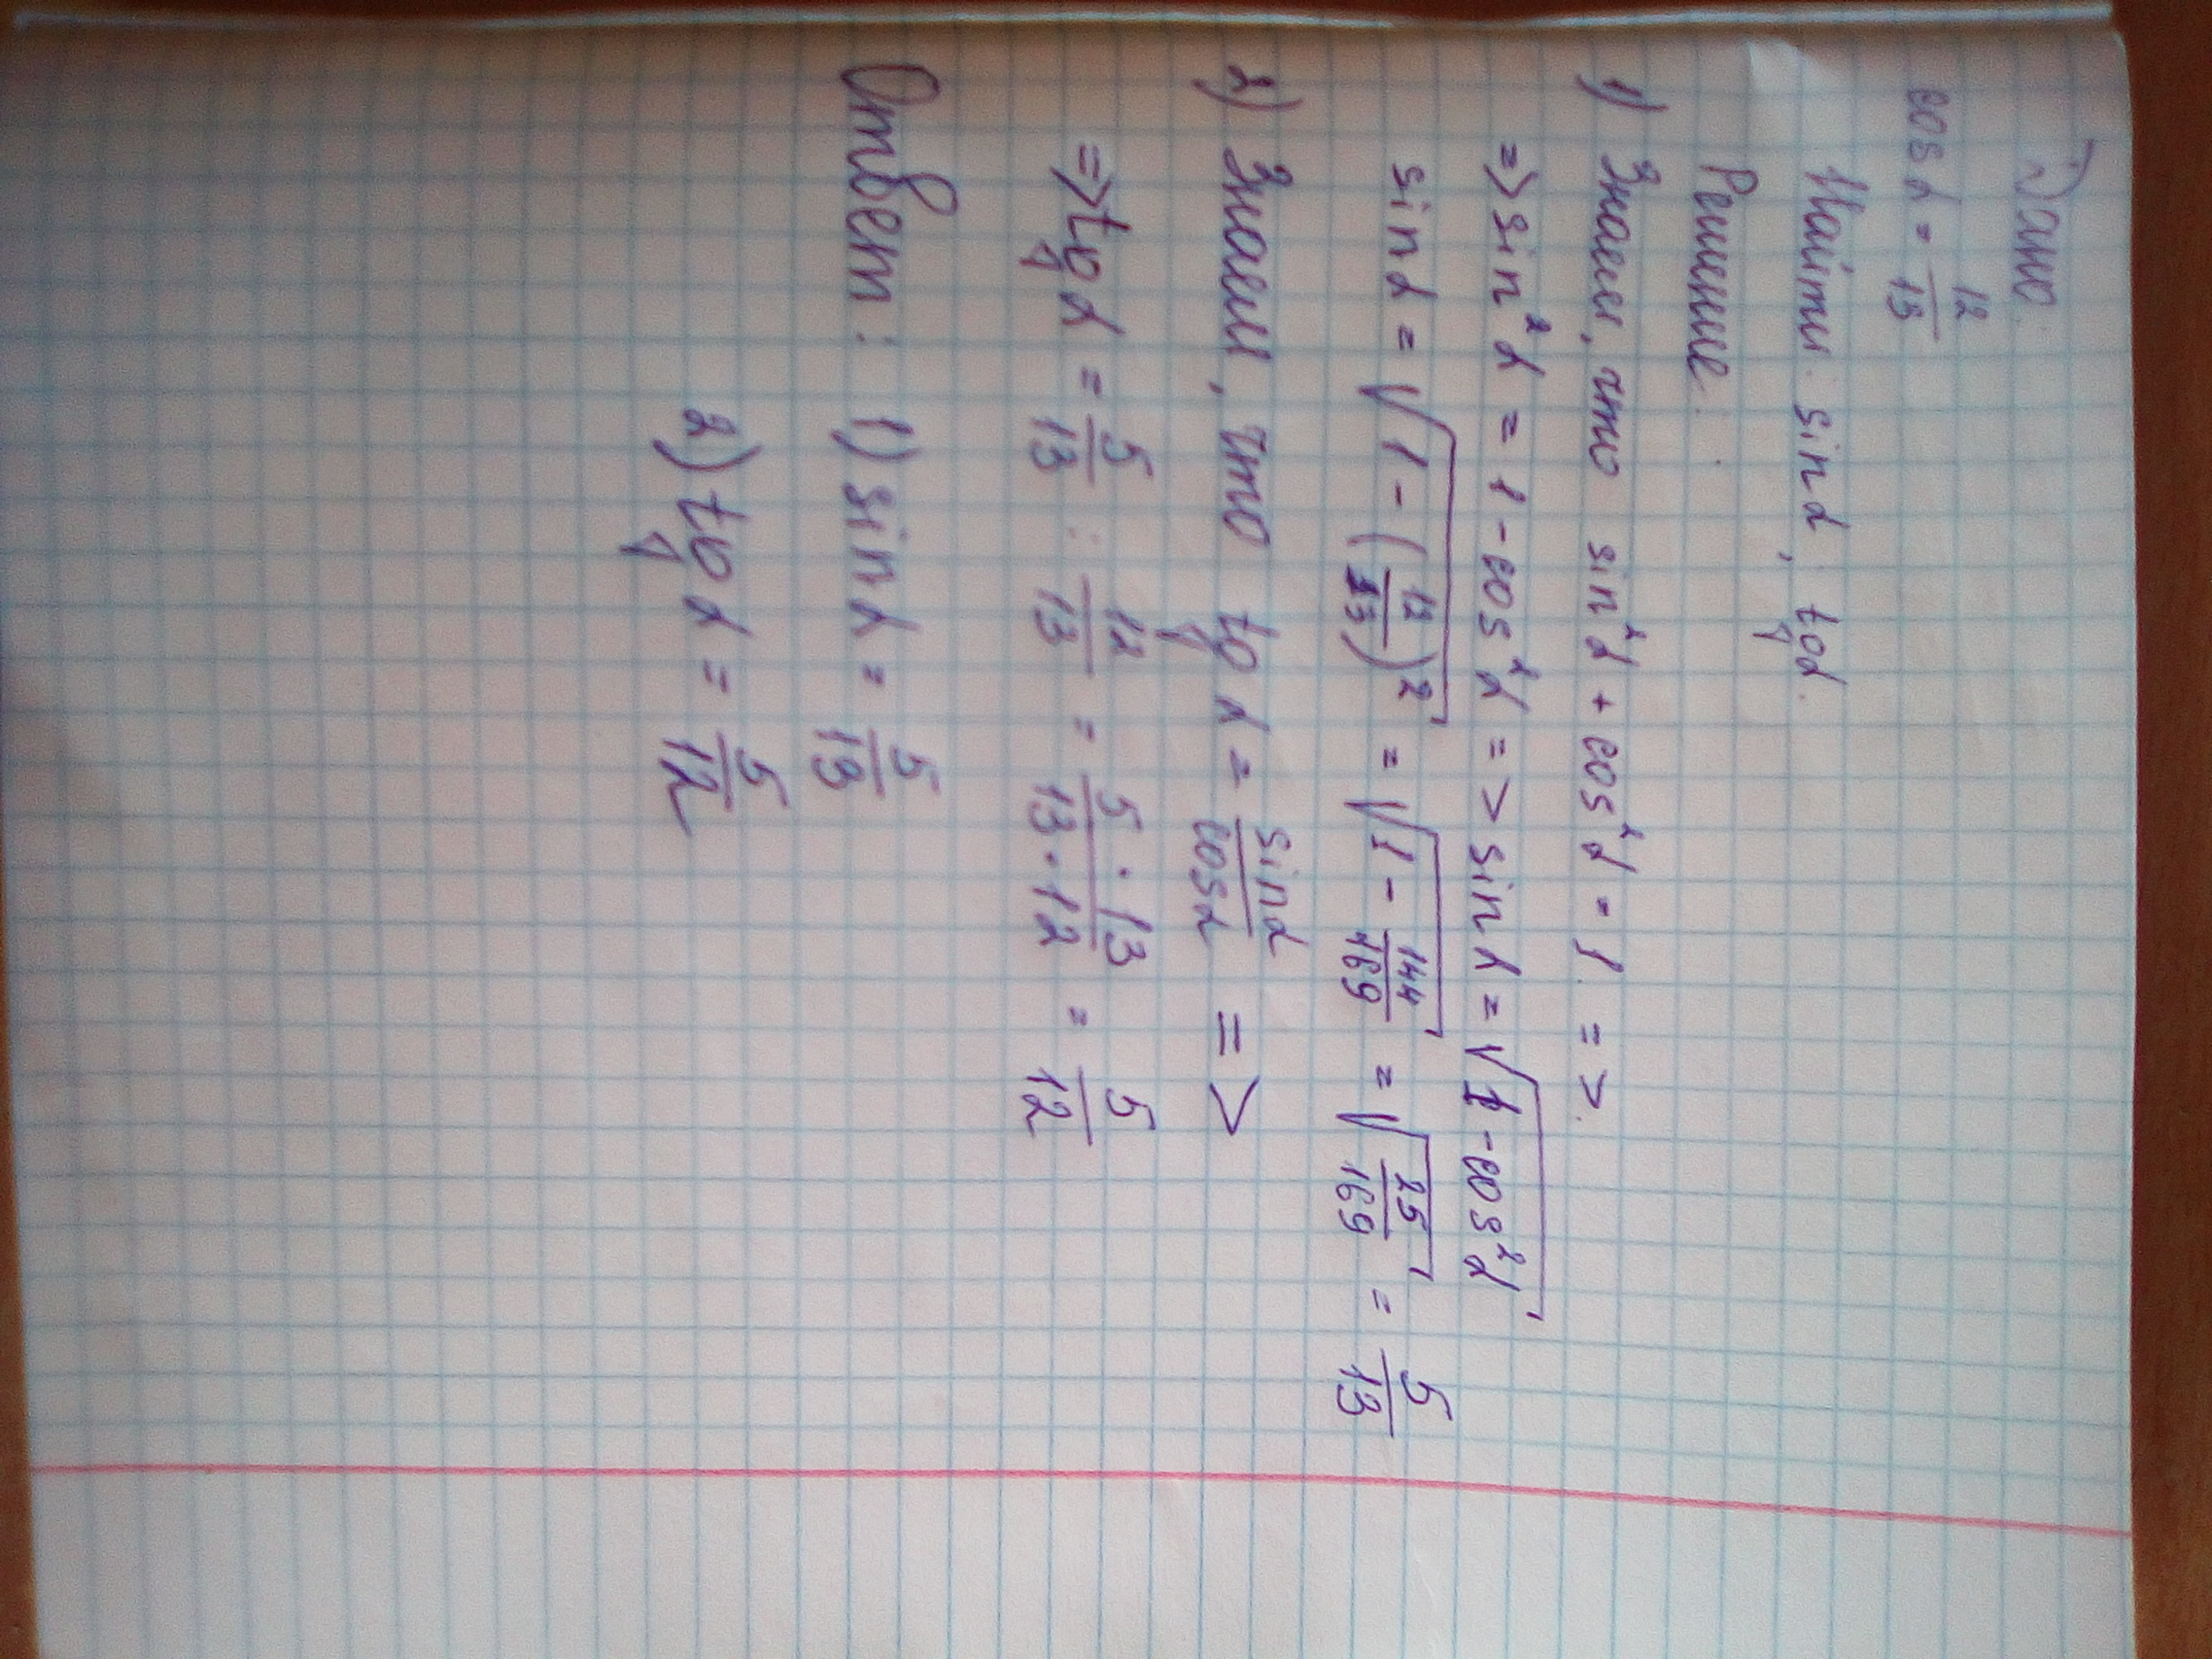 Дано:
cos α = 12/13
Найти: sin α, tg α.
Решение.
1) Знаем, что sin² α + cos² α = 1. =>
=> sin² α = 1 - cos² α => sin α = √(1 - cos² α)
sin α = √(1 - (12/13)²) = √(1 - 144/169) = √(25/169) = 5/13
2) Знаем, что tg α = sin α/cos α =>
=> tg α = 5/13 : 12/13 = 5 · 13/13 · 12 = 5/12
Ответ: 1) sin α = 5/13
2) tg α = 5/12